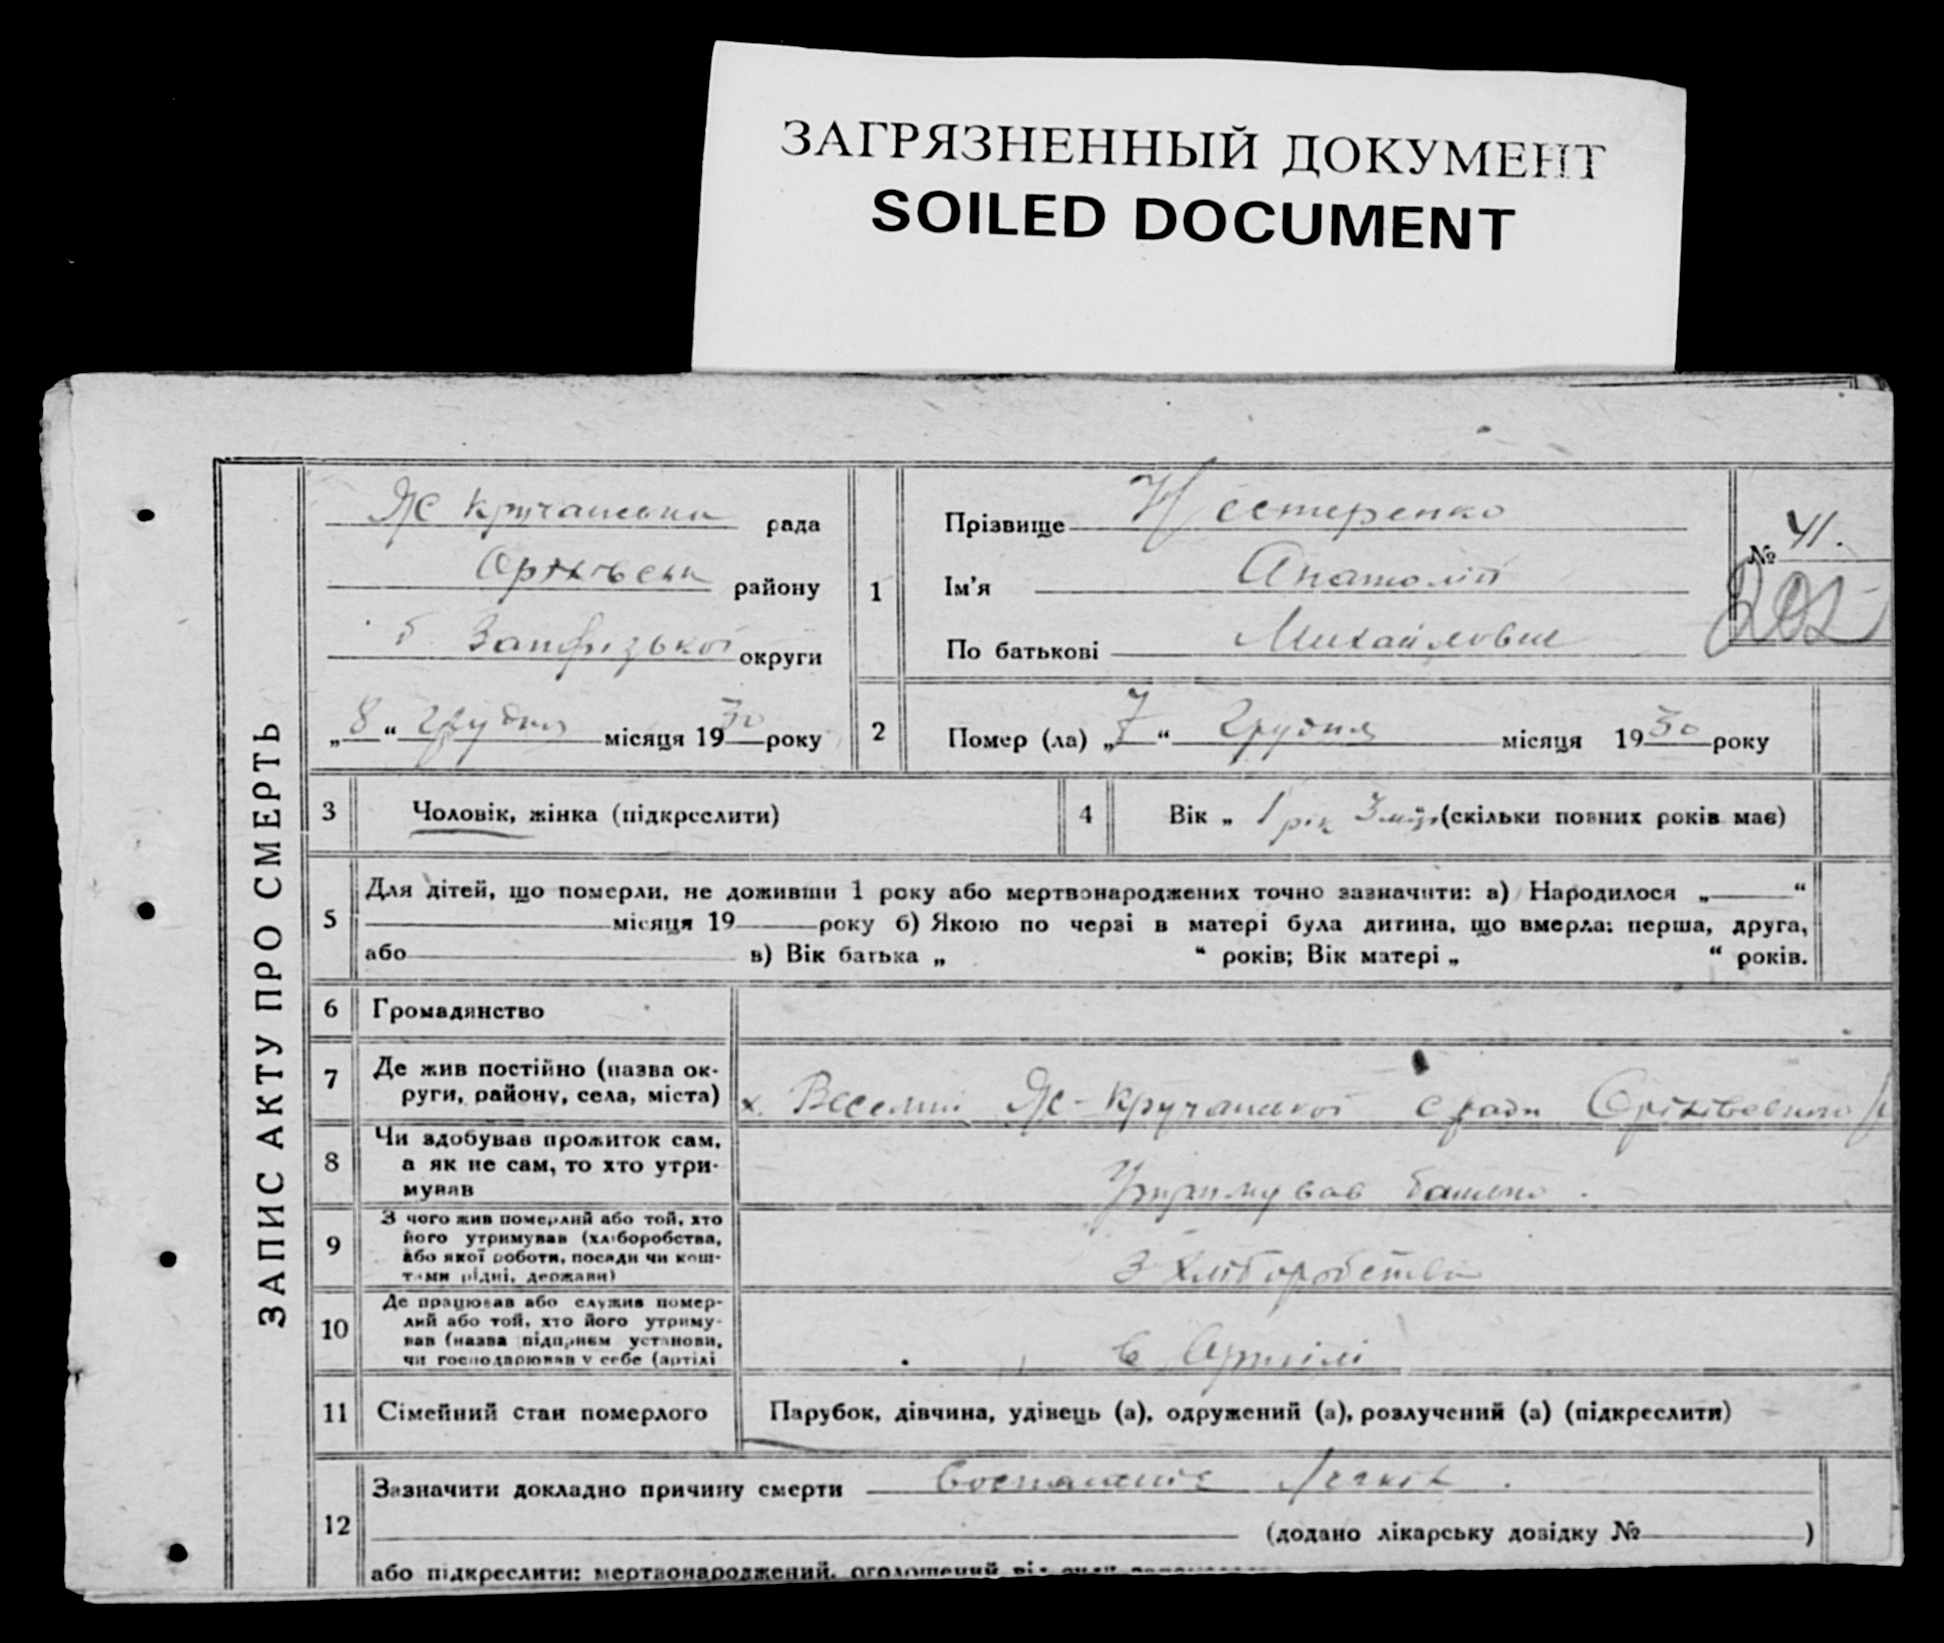 ЗАГРЯЗНЕННЫЙ ДОКУМЕНТ
SOILED DOCUMENT
ЗАПИС АКТУ ПРО СМЕРТЬ
рада
району
б. округи
„8“ Грудня місяця 1930 року
1
Прізвище Нестеренко
Ім'я Анатолій
По батькові Михайлович
№ 41.
202
2 Помер (ла) „7“ Грудня місяця 1930 року
3 Чоловік, жінка (підкреслити)
4 Вік „ 1 рік 3 (скільки повних років має)
5 Для дітей, що померли, не доживши 1 року або мертвонароджених точно зазначити: а) Народилося „ “
місяця 19 року б) Якою по черзі в матері була дитина, що вмерла: перша, друга,
або в) Вік батька „ “ років; Вік матері „ “ років.
6 Громадянство
7 Де жив постійно (назва ок-
руги, району, села, міста)
х. Веселий Яс-Кручанської с ради Оріхівського р
8 Чи здобував прожиток сам,
а як не сам, то хто утри-
мував
Утримував батько.
9 З чого жив померлий або той, хто
його утримував (хліборобства,
або якої роботи, посади чи кош-
тами рідні, держави)
З хліборобства
10 Де працював або служив помер-
лий або той, хто його утриму-
вав (назва підприєм установи,
чи господарював у себе (артілі
в Артілі
11 Сімейний стан померлого
Парубок, дівчина, удівець (а), одружений (а), розлучений (а) (підкреслити)
12 Зазначити докладно причину смерти
(додано лікарську довідку № )
або підкреслити: мертвонароджений,